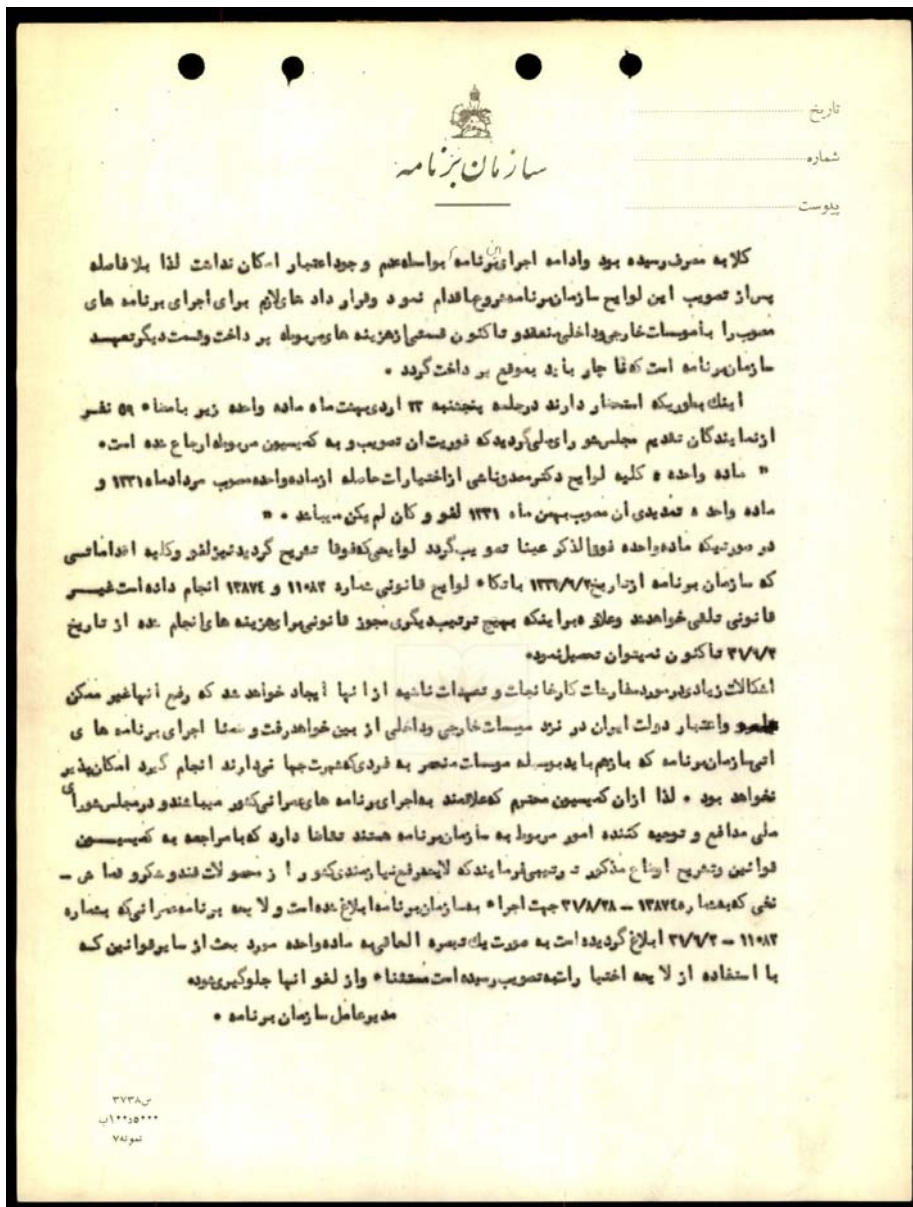 تاریخ
شماره
پیوست
سازمان برنامه
کلا به مصرف رسیده بود وادامه اجرای این برنامه بواسطه عدم وجود اعتبار امکان نداشت لذا بلافاصله
پس از تصویب این لوایح سازمان برنامه شروع باقدام نمود وقرار داد های لازم برای اجرای برنامه های
مصوب را با موسسات خارجی وداخلی منعقد و تاکنون قسمتی از هزینه های مربوطه پر داخت وقسمت دیگر تعهد
سازمان برنامه است که نا چار باید بموقع پر داخت گردد ٠
اینك بطوریکه استحضار دارند درجلسه پنجشنبه ۲۳ اردیبهشت ماه ماده واحده زیر بامضاء ٥۹ نفر
از نمایندگان تقدیم مجلس شو رای ملی گردید که فوریت ان تصویب و به کمیسیون مربوطه ارجاع شده است٠
" ماده واحده ه کلیه لوایح دکتر مصدق ناشی از اختیارات حاصله از ماده واحده مصوب مردادماه ۱۳۳۱ و
ماده واحد ه تمدیدی ان مصوب بهمن ماه ۱۳۳۱ لغو و کان لم یکن میباشد ٠ "
در صورتیکه ماده واحده فوق الذکر عینا تصو یب گردد لوایحی که فوقا تشریح گردید نیز لغو وکلیه اقداماتی
که سازمان برنامه از تاریخ ۱۳۳۱/۷/۲ باتکاء لوایح قانونی شماره ۱۱۰۸۲ و ۱۳۸۷٤ انجام داده است غیر
قانونی تلقی خواهد شد وعلاو ه بر اینکه بهیچ ترتیب دیگری مجوز قانونی برای هزینه های انجام شده از تاریخ
۳۱/۷/۲ تاکنو ن نمیتوان تحصیل نمود٠
اشکالات زیادی در مورد سفارشات کارخانجات و تعهدات ناشیه از انها ایجاد خواهد شد که رفع انها غیر ممکن
واعتبار دولت ایران در نزد موسسات خارجی وداخلی از بین خواهد رفت و ضمنا اجرای برنامه ها ی
اتی سازمان برنامه که بازهم باید بوسیله موسسات منحصر به فردی که شهرت جها نی دارند انجام گیرد امکان پذیر
نخواهد بود ٠ لذا ازان کمیسیون محترم که علاقمند به اجرای برنامه های عمرانی کشور میباشند و در مجلس شورای
ملی مدافع و توجیه کننده امور مربوط به سازمان برنامه هستند تقاضا دارد که بامراجعه به کمیسیون
قوانین وتشریح اوضاع مذکور تر تیبی فرمایند که لایحه رفع نیازمندی کشو ر ا ز محصو لات قند و شکر و قما ش -
نخی که بشما ره ۱۳۸۷٤ - ۳۱/۸/۲۸ جهت اجراء به سازمان برنامه ابلاغ شده است و لا یحه برنامه عمرانی که بشماره
۱۱۰۸۲ - ۳۱/۷/۲ ابلاغ گردیده است به صورت یك تبصره الحاقی به ماده واحده مورد بحث از سایر قوانین که
با استفاده از لا یحه اختیا رات به تصویب رسیده است مستثناء واز لغو انها جلوگیری شود٠
مدیر عامل سازمان برنامه ٠
س۳۷۳۸
نمونه ۷